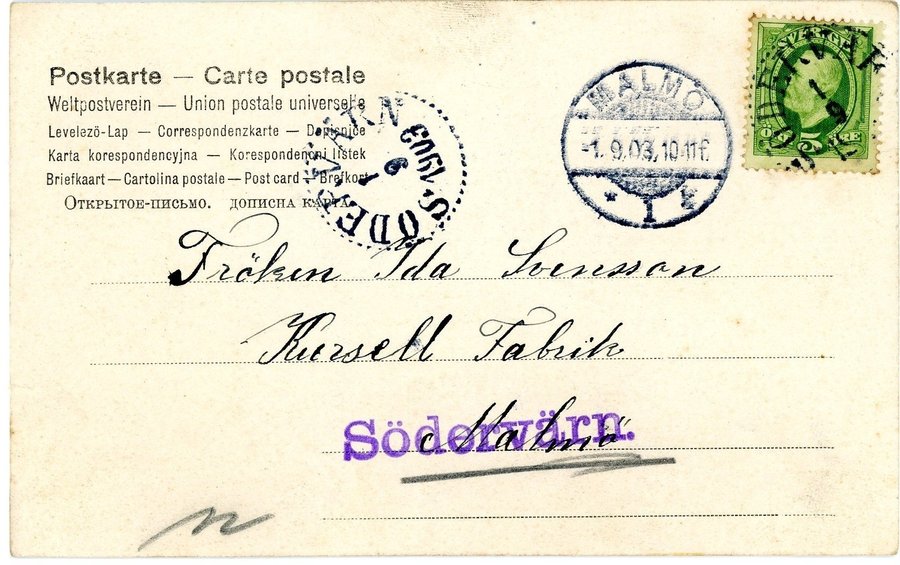 Postkarte — Carte postale
Weltpostverein — Union postale universelle
Levelezö-Lap — Correspondenzkarte — Dopisnice
Karta korespondencyjna — Korespondenční listek
Briefkaart — Cartolina postale — Post card — Brefkort
Открытое-письмо. дописна карта.
SÖDERVÄRN
1
9
1903
MALMÖ
-1. 9.03, 10-11 f.
* 1 *
SVERIGE
5
ÖRE
SÖDERVÄRN
1
9
Fröken Ida Svensson
Kursell Fabrik
Malmö
Södervärn.